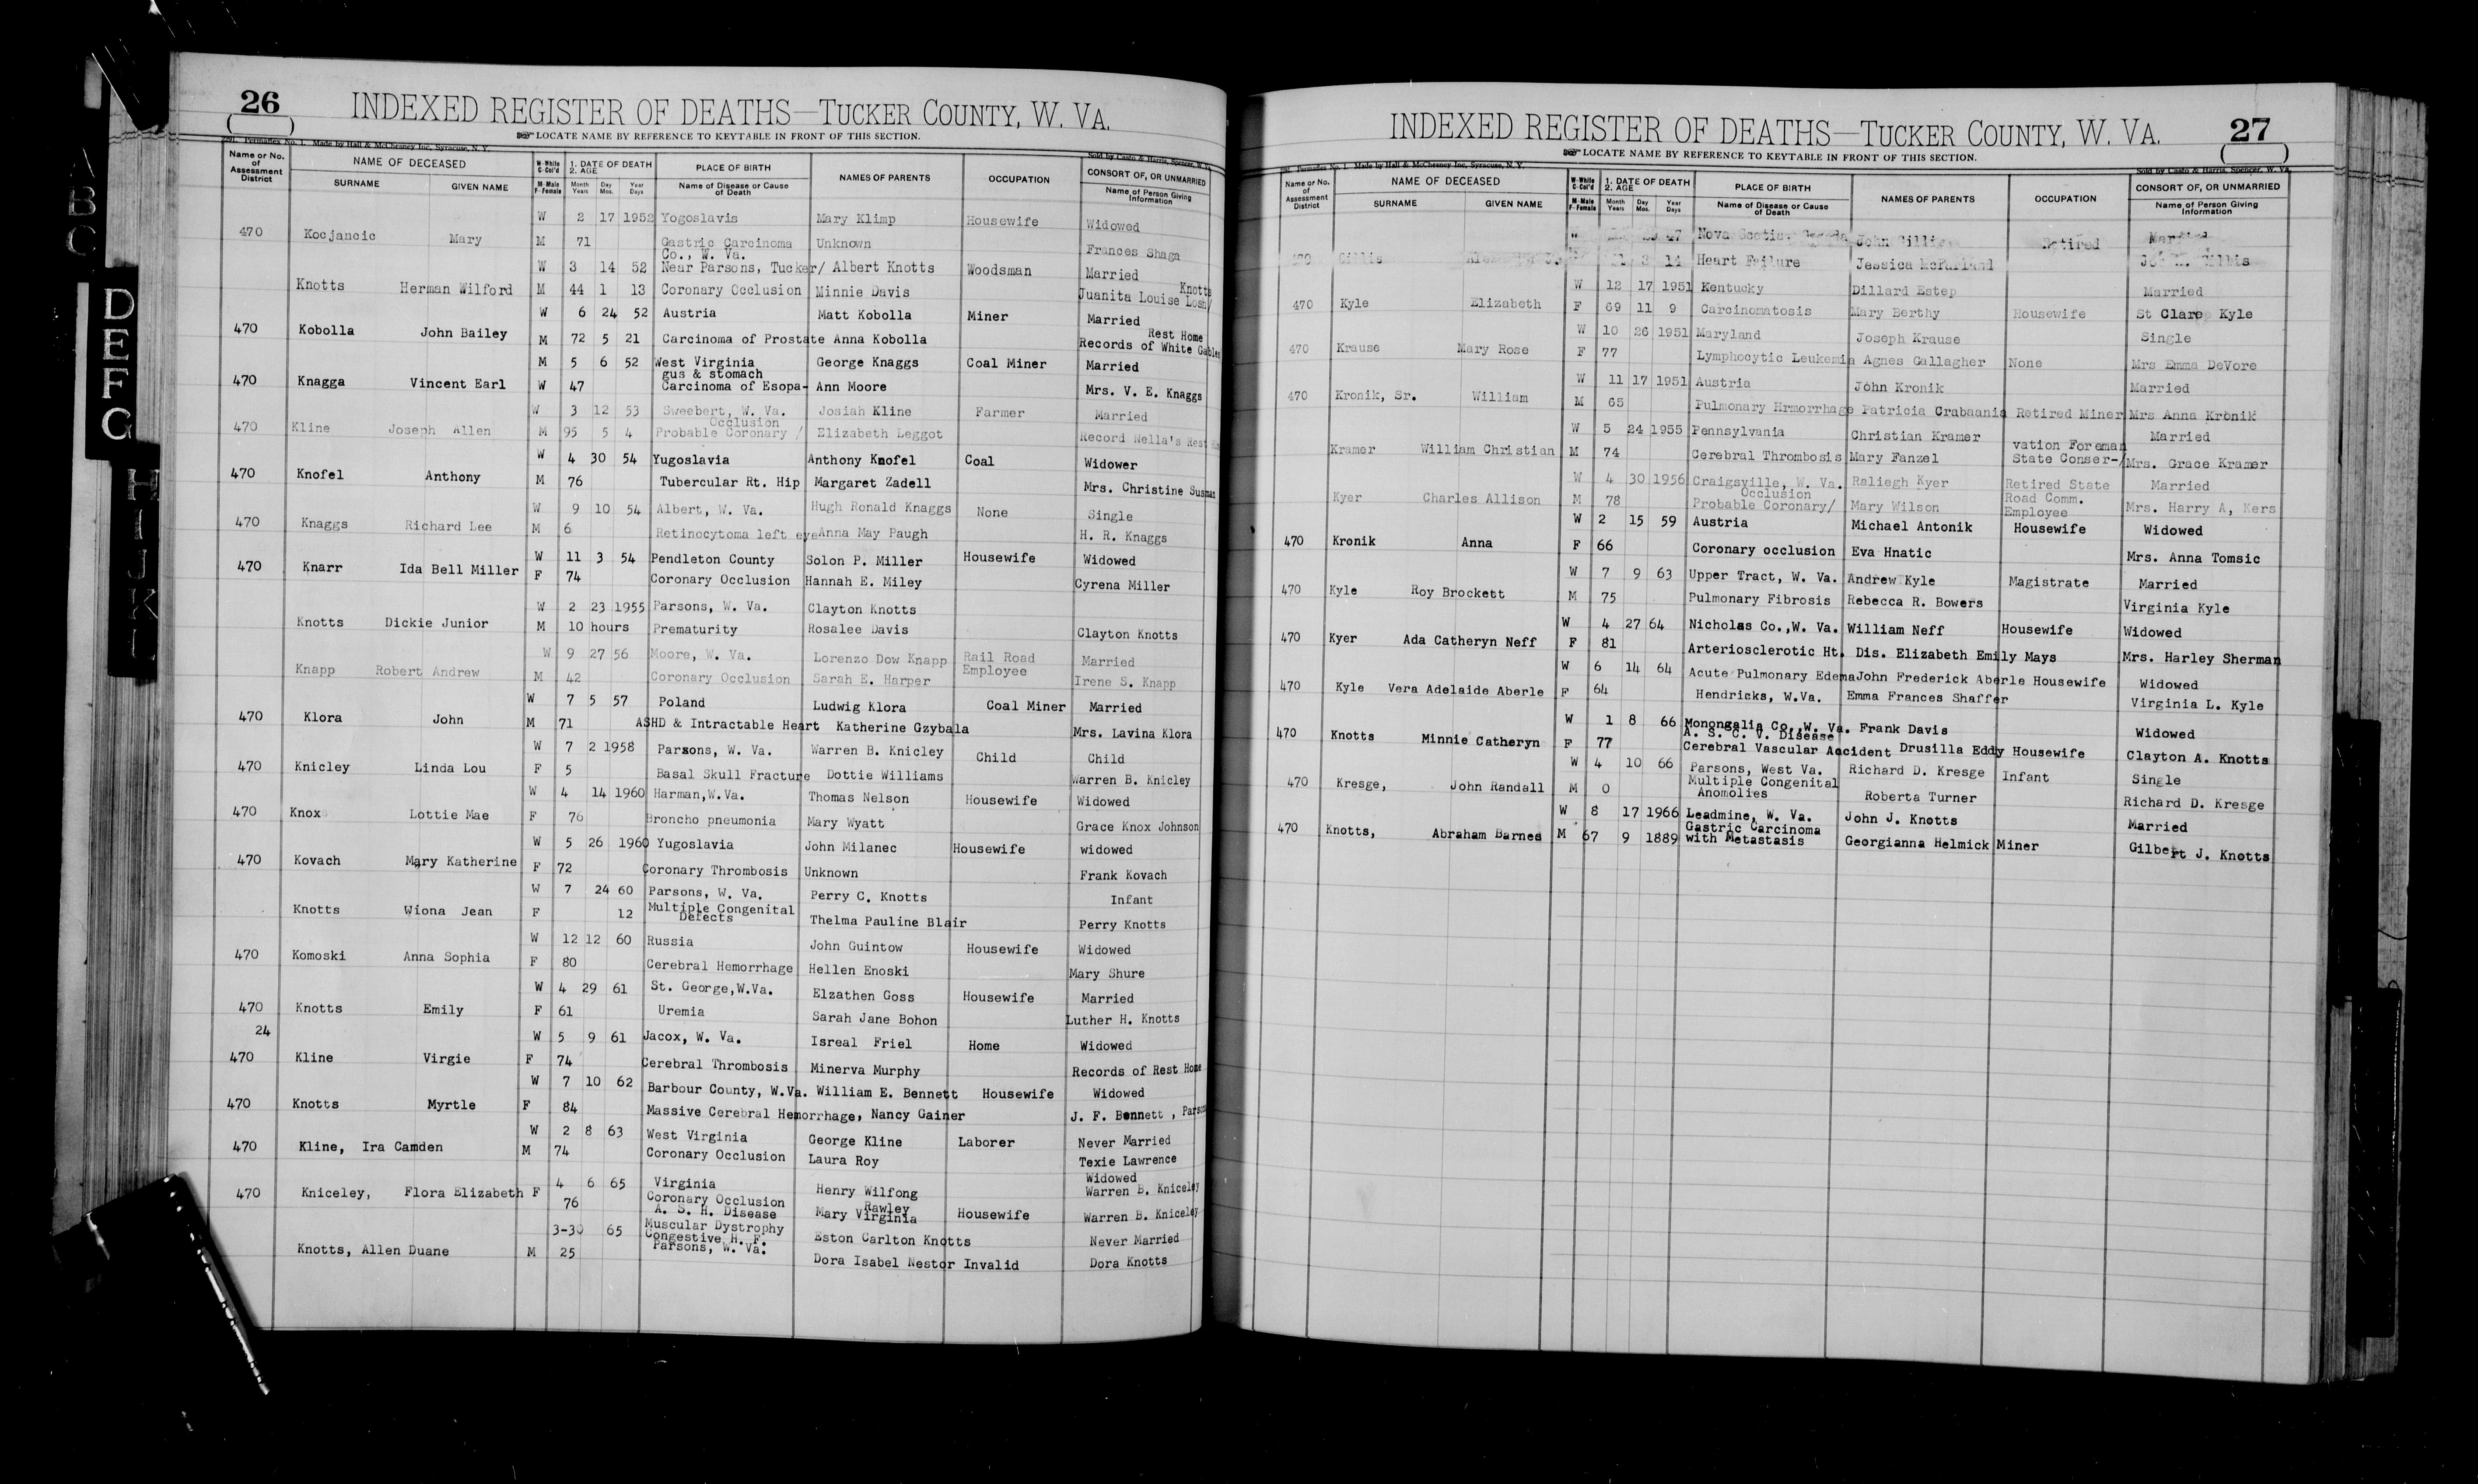 A
B
C
D
E
F
G
H
I
J
K
L
26
INDEXED REGISTER OF DEATHS—TUCKER COUNTY, W. VA.
LOCATE NAME BY REFERENCE TO KEYTABLE IN FRONT OF THIS SECTION.
Made by Hall & McChesney Inc, Syracuse, N. Y.
Sold by Casto & Harris, Spencer, W. Va.
Name or No. of Assessment District
NAME OF DECEASED
SURNAME GIVEN NAME
W-White C-Col'd
M-Male F-Female
1. DATE OF DEATH
2. AGE
Month Day Year
Years Mos. Days
PLACE OF BIRTH
Name of Disease or Cause of Death
NAMES OF PARENTS
OCCUPATION
CONSORT OF, OR UNMARRIED
Name of Person Giving Information
W 2 17 1952 Yogoslavis Mary Klimp Housewife Widowed
470 Kocjancic Mary M 71 Gastric Carcinoma Unknown Frances Shaga
Co., W. Va.
W 3 14 52 Near Parsons, Tucker/ Albert Knotts Woodsman Married
Knotts
Knotts Herman Wilford M 44 1 13 Coronary Occlusion Minnie Davis Juanita Louise Losh/
W 6 24 52 Austria Matt Kobolla Miner Married
Rest Home
470 Kobolla John Bailey M 72 5 21 Carcinoma of Prostate Anna Kobolla Records of White Gables
M 5 6 52 West Virginia George Knaggs Coal Miner Married
gus & stomach
470 Knagga Vincent Earl W 47 Carcinoma of Esopa- Ann Moore Mrs. V. E. Knaggs
W 3 12 53 Sweebert, W. Va. Josiah Kline Farmer Married
Occlusion
470 Kline Joseph Allen M 95 5 4 Probable Coronary / Elizabeth Leggot Record Nella's Rest
W 4 30 54 Yugoslavia Anthony Knofel Coal Widower
470 Knofel Anthony M 76 Tubercular Rt. Hip Margaret Zadell Mrs. Christine Susman
W 9 10 54 Albert, W. Va. Hugh Ronald Knaggs None Single
470 Knaggs Richard Lee M 6 Retinocytoma left eye Anna May Paugh H. R. Knaggs
W 11 3 54 Pendleton County Solon P. Miller Housewife Widowed
470 Knarr Ida Bell Miller F 74 Coronary Occlusion Hannah E. Miley Cyrena Miller
W 2 23 1955 Parsons, W. Va. Clayton Knotts
Knotts Dickie Junior M 10 hours Prematurity Rosalee Davis Clayton Knotts
W 9 27 56 Moore, W. Va. Lorenzo Dow Knapp Rail Road Married
Knapp Robert Andrew M 42 Coronary Occlusion Sarah E. Harper Employee Irene S. Knapp
W 7 5 57 Poland Ludwig Klora Coal Miner Married
470 Klora John M 71 ASHD & Intractable Heart Katherine Gzybala Mrs. Lavina Klora
W 7 2 1958 Parsons, W. Va. Warren B. Knicley Child Child
470 Knicley Linda Lou F 5 Basal Skull Fracture Dottie Williams Warren B. Knicley
W 4 14 1960 Harman,W.Va. Thomas Nelson Housewife Widowed
470 Knox Lottie Mae F 76 Broncho pneumonia Mary Wyatt Grace Knox Johnson
W 5 26 1960 Yugoslavia John Milanec Housewife widowed
470 Kovach Mary Katherine F 72 Coronary Thrombosis Unknown Frank Kovach
W 7 24 60 Parsons, W. Va. Perry C. Knotts Infant
Knotts Wiona Jean F 12 Multiple Congenital Defects Thelma Pauline Blair Perry Knotts
W 12 12 60 Russia John Guintow Housewife Widowed
470 Komoski Anna Sophia F 80 Cerebral Hemorrhage Hellen Enoski Mary Shure
W 4 29 61 St. George,W.Va. Elzathen Goss Housewife Married
470 Knotts Emily F 61 Uremia Sarah Jane Bohon Luther H. Knotts
24
W 5 9 61 Jacox, W. Va. Isreal Friel Home Widowed
470 Kline Virgie F 74 Cerebral Thrombosis Minerva Murphy Records of Rest Home
W 7 10 62 Barbour County, W.Va. William E. Bennett Housewife Widowed
470 Knotts Myrtle F 84 Massive Cerebral Hemorrhage, Nancy Gainer J. F. Bennett , Parsons
W 2 8 63 West Virginia George Kline Laborer Never Married
470 Kline, Ira Camden M 74 Coronary Occlusion Laura Roy Texie Lawrence
4 6 65 Virginia Henry Wilfong Widowed Warren B. Kniceley
470 Kniceley, Flora Elizabeth F 76 Coronary Occlusion
A. S. H. Disease Mary Virginia Rawley Housewife Warren B. Kniceley
3-30 65 Muscular Dystrophy Eston Carlton Knotts Never Married
Congestive H. F.
Knotts, Allen Duane M 25 Parsons, W. Va. Dora Isabel Nestor Invalid Dora Knotts
27
INDEXED REGISTER OF DEATHS—TUCKER COUNTY, W. VA.
LOCATE NAME BY REFERENCE TO KEYTABLE IN FRONT OF THIS SECTION.
Made by Hall & McChesney Inc, Syracuse, N. Y.
Sold by Casto & Harris, Spencer, W. Va.
Name or No. of Assessment District
NAME OF DECEASED
SURNAME GIVEN NAME
W-White C-Col'd
M-Male F-Female
1. DATE OF DEATH
2. AGE
Month Day Year
Years Mos. Days
PLACE OF BIRTH
Name of Disease or Cause of Death
NAMES OF PARENTS
OCCUPATION
CONSORT OF, OR UNMARRIED
Name of Person Giving Information
Nova Scotia, John Gillis Retired Married
470 Gillis Heart Failure Jessica McFarland Gillis
W 12 17 1951 Kentucky Dillard Estep Married
470 Kyle Elizabeth F 69 11 9 Carcinomatosis Mary Berthy Housewife St Clare Kyle
W 10 26 1951 Maryland Joseph Krause Single
470 Krause Mary Rose F 77 Lymphocytic Leukemia Agnes Gallagher None Mrs Emma DeVore
W 11 17 1951 Austria John Kronik Married
470 Kronik, Sr. William M 65 Pulmonary Hrmorrhage Patricia Crabaania Retired Miner Mrs Anna Kronik
W 5 24 1955 Pennsylvania Christian Kramer vation Foreman Married
Kramer William Christian M 74 Cerebral Thrombosis Mary Fanzel State Conser-/ Mrs. Grace Kramer
W 4 30 1956 Craigsville, W. Va. Raliegh Kyer Retired State Married
Occlusion
Kyer Charles Allison M 78 Probable Coronary/ Mary Wilson Road Comm. Employee Mrs. Harry A, Kers
W 2 15 59 Austria Michael Antonik Housewife Widowed
470 Kronik Anna F 66 Coronary occlusion Eva Hnatic Mrs. Anna Tomsic
W 7 9 63 Upper Tract, W. Va. Andrew Kyle Magistrate Married
470 Kyle Roy Brockett M 75 Pulmonary Fibrosis Rebecca R. Bowers Virginia Kyle
W 4 27 64 Nicholas Co.,W. Va. William Neff Housewife Widowed
470 Kyer Ada Catheryn Neff F 81 Arteriosclerotic Ht. Dis. Elizabeth Emily Mays Mrs. Harley Sherman
W 6 14 64 Acute Pulmonary Edema John Frederick Aberle Housewife Widowed
470 Kyle Vera Adelaide Aberle F 64 Hendricks, W.Va. Emma Frances Shaffer Virginia L. Kyle
W 1 8 66 Monongalia Co.,W. Va. Frank Davis Widowed
A. S. C. V. Disease
470 Knotts Minnie Catheryn F 77 Cerebral Vascular Accident Drusilla Eddy Housewife Clayton A. Knotts
W 4 10 66 Parsons, West Va. Richard D. Kresge Infant Single
470 Kresge, John Randall M 0 Multiple Congenital Anomolies Roberta Turner Richard D. Kresge
W 8 17 1966 Leadmine, W. Va. John J. Knotts Married
470 Knotts, Abraham Barnes M 67 9 1889 Gastric Carcinoma with Metastasis Georgianna Helmick Miner Gilbert J. Knotts